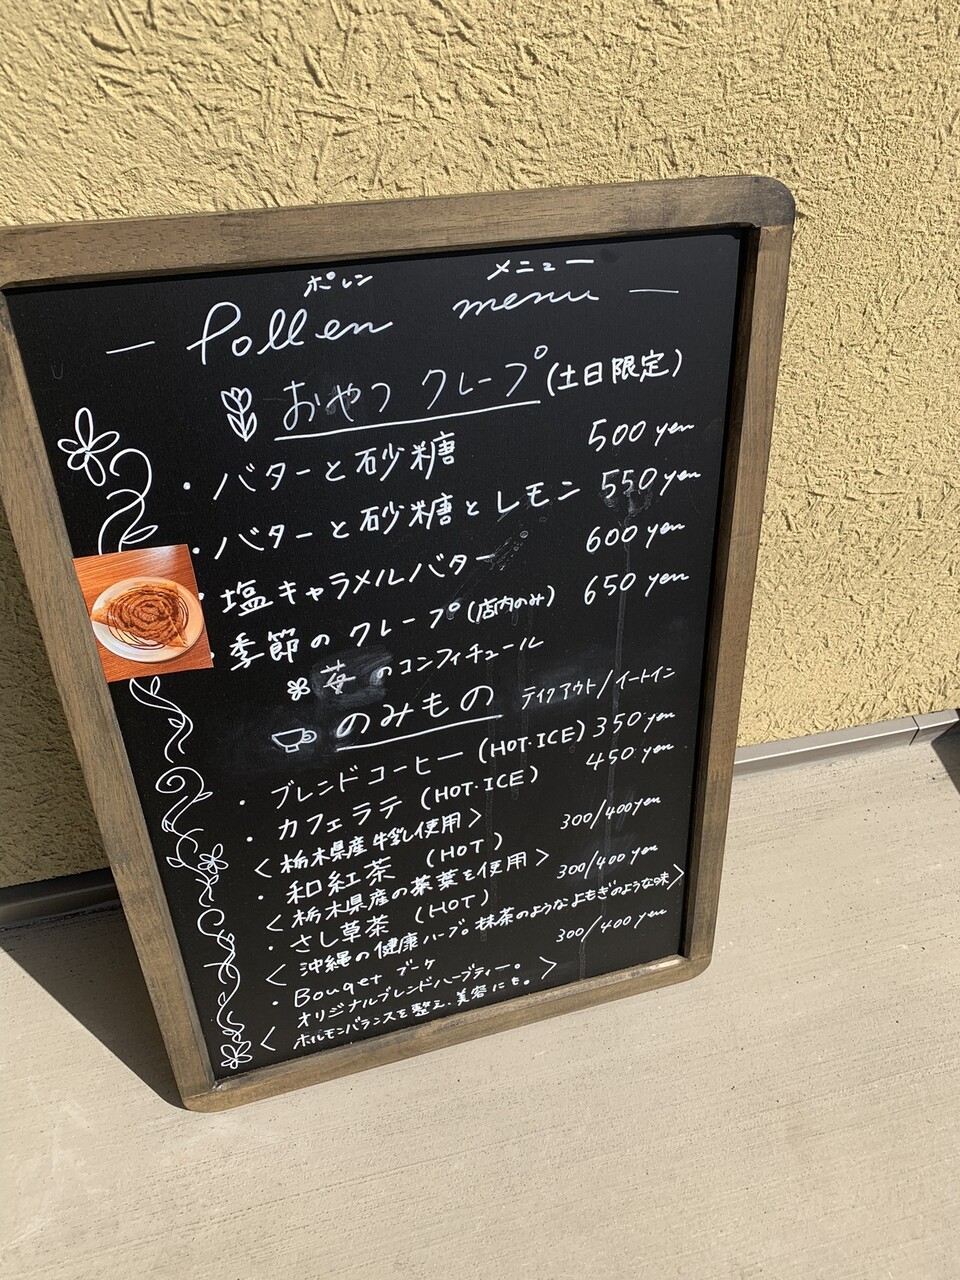 ポレン メニュー
— Pollen menu —
おやつ クレープ (土日限定)
・バターと砂糖 500 yen
・バターと砂糖とレモン 550 yen
・塩キャラメルバター 600 yen
・季節の クレープ (店内のみ) 650 yen
苺 のコンフィチュール
のみもの テイクアウト/イートイン
・ブレンドコーヒー (HOT・ICE) 350 yen
・カフェラテ (HOT・ICE) 450 yen
<栃木県産牛乳使用>
・和紅茶 (HOT) 300/400 yen
<栃木県産の茶葉を使用>
・さし草茶 (HOT) 300/400 yen
<沖縄の健康ハーブ。抹茶のようなよもぎのような味>
・Bouqet ブーケ 300/400 yen
オリジナルブレンドハーブティー。
<ホルモンバランスを整え、美容にも。>